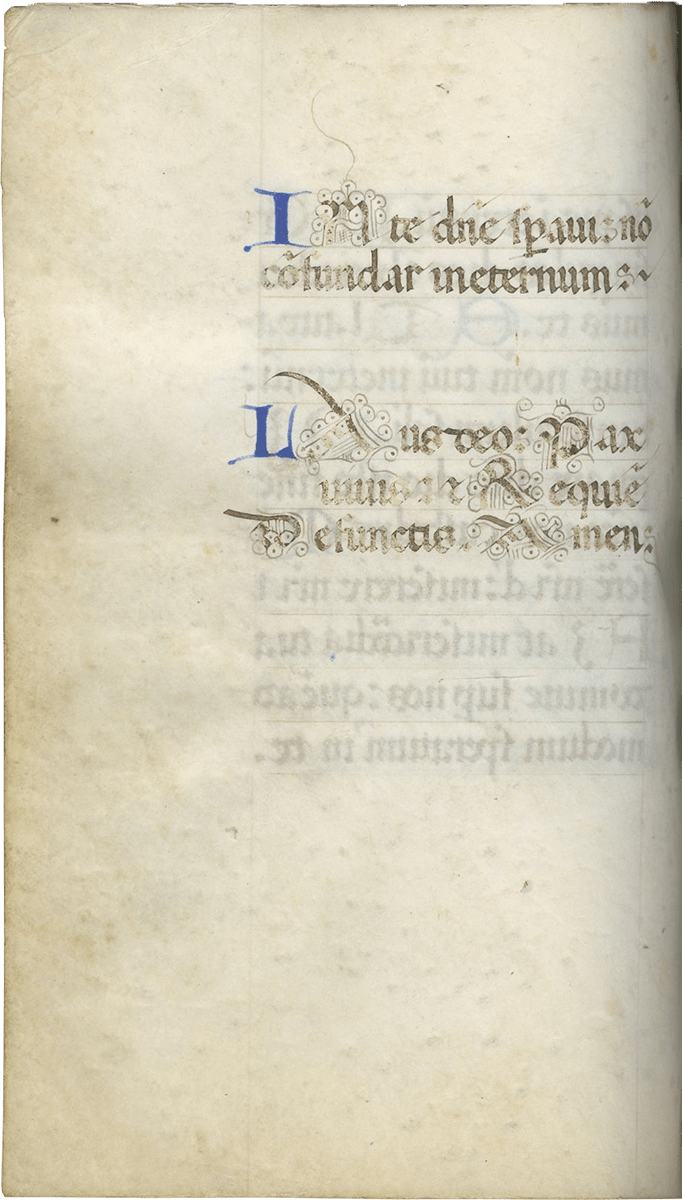 IN te dñe sp̱aui: nõ
cõfundar in eternum:
LAus deo: Pax
uiuis: et Requiẽ
Defunctis. Amen: